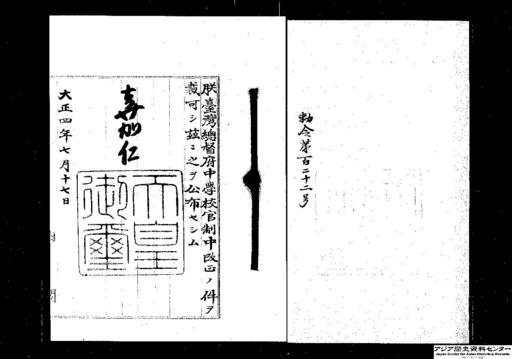 勅令第百二十二号
朕臺灣總督府中學校官制中改正ノ件ヲ
裁可シ茲ニ之ヲ公布セシム
嘉仁
天皇
御璽
大正四年七月十七日
アジア歴史資料センター
Japan Center for Asian Historical Records